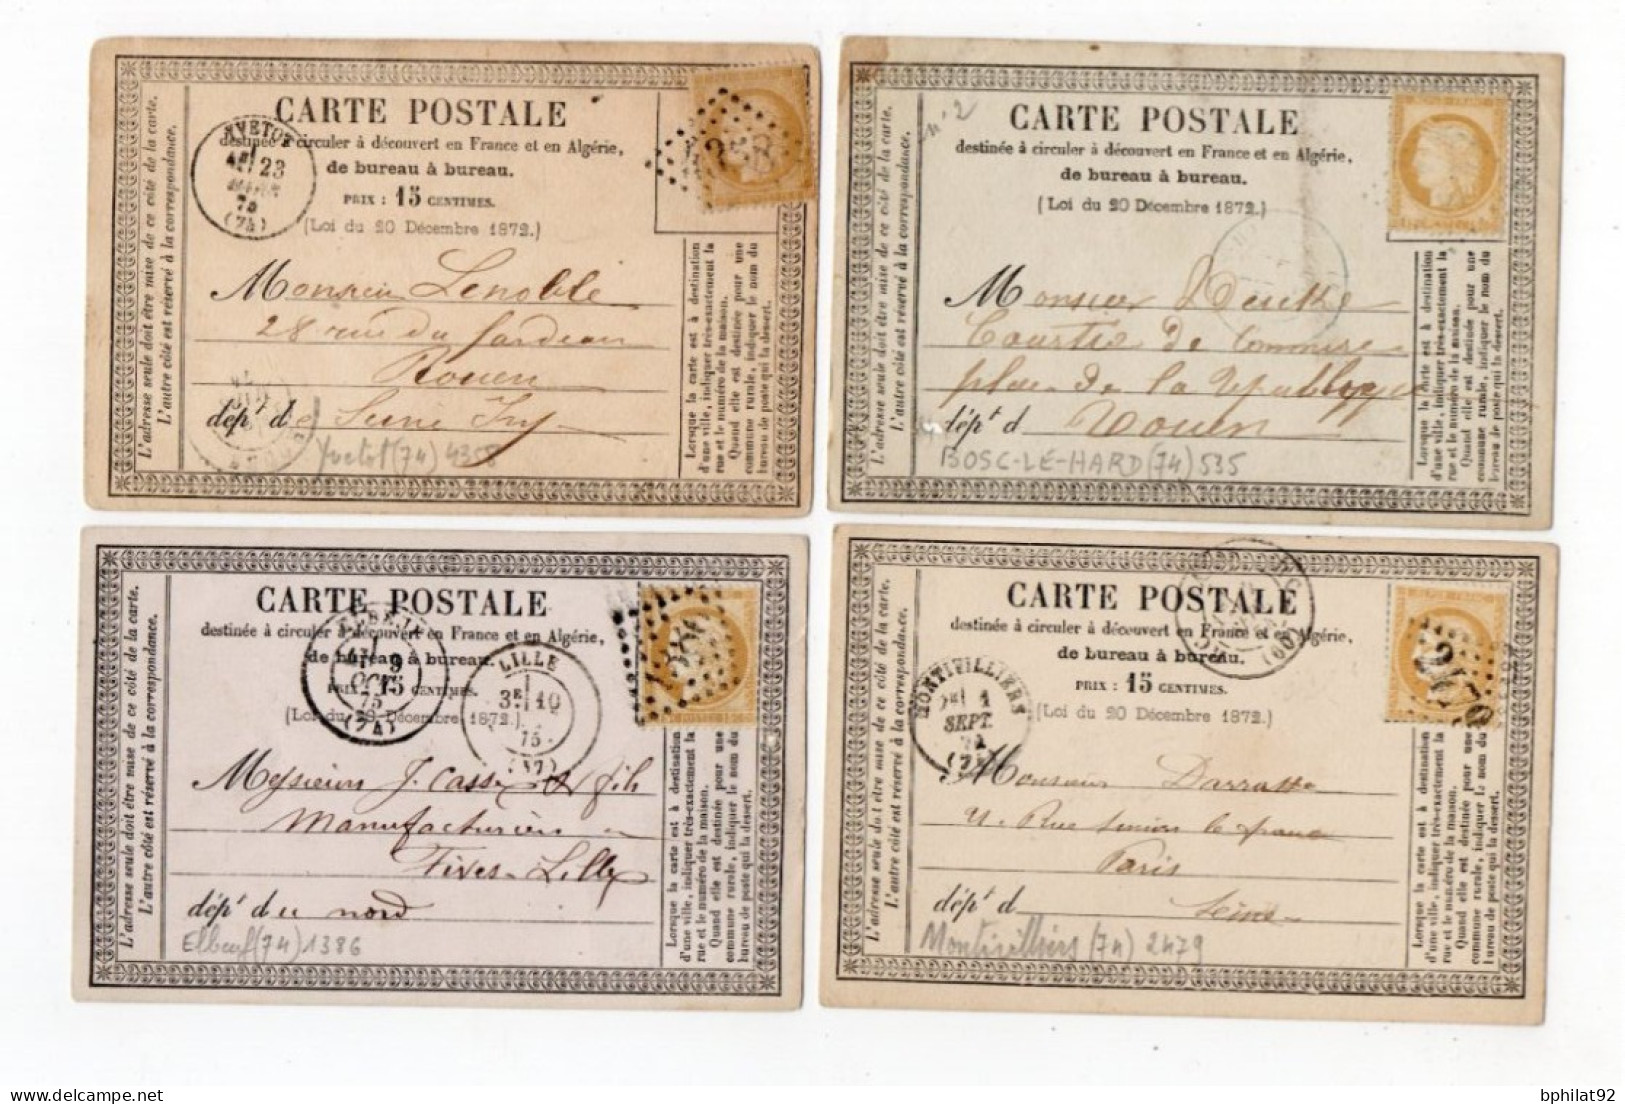 CARTE POSTALE
destinée à circuler à découvert en France et en Algérie,
de bureau à bureau.
PRIX : 15 CENTIMES.
(Loi du 20 Décembre 1872.)
YVETOT
23
75
(74)
4358
Monsieur Lenoble
28 rue du
Rouen
dép.t d Seine Infre
Yvetot (74) 4358
L'adresse seule doit être mise de ce côté de la carte.
L'autre côté est réservé à la correspondance.
Lorsque la carte est à destination
d'une ville, indiquer très-exactement la
rue et le numéro de la maison.
Quand elle est destinée pour une
commune rurale, indiquer le nom du
bureau de poste qui la dessert.
n°2
CARTE POSTALE
destinée à circuler à découvert en France et en Algérie,
de bureau à bureau.
(Loi du 20 Décembre 1872.)
Monsieur
Courtier de Commerce
place de la République
dép.t d Rouen
BOSC-LE-HARD (74) 535
L'adresse seule doit être mise de ce côté de la carte.
L'autre côté est réservé à la correspondance.
Lorsque la carte est à destination
d'une ville, indiquer très-exactement la
rue et le numéro de la maison.
Quand elle est destinée pour une
commune rurale, indiquer le nom du
bureau de poste qui la dessert.
CARTE POSTALE
destinée à circuler à découvert en France et en Algérie,
de bureau à bureau.
PRIX : 15 CENTIMES.
(Loi du 20 Décembre 1872.)
9
OCT.
75
(74)
LILLE
3E 10
75
(57)
1386
Messieurs J. Casse & fils
Manufacturiers
Fives-Lille
dép.t du nord
Elbeuf (74) 1386
L'adresse seule doit être mise de ce côté de la carte.
L'autre côté est réservé à la correspondance.
Lorsque la carte est à destination
d'une ville, indiquer très-exactement la
rue et le numéro de la maison.
Quand elle est destinée pour une
commune rurale, indiquer le nom du
bureau de poste qui la dessert.
CARTE POSTALE
destinée à circuler à découvert en France et en Algérie,
de bureau à bureau.
PRIX : 15 CENTIMES.
(Loi du 20 Décembre 1872.)
(60)
MONTIVILLIERS
1
SEPT.
74
Monsieur
Rue Simon le franc
Paris
dép.t d Seine
Montivilliers (74) 2479
L'adresse seule doit être mise de ce côté de la carte.
L'autre côté est réservé à la correspondance.
Lorsque la carte est à destination
d'une ville, indiquer très-exactement la
rue et le numéro de la maison.
Quand elle est destinée pour une
commune rurale, indiquer le nom du
bureau de poste qui la dessert.
bphilat92